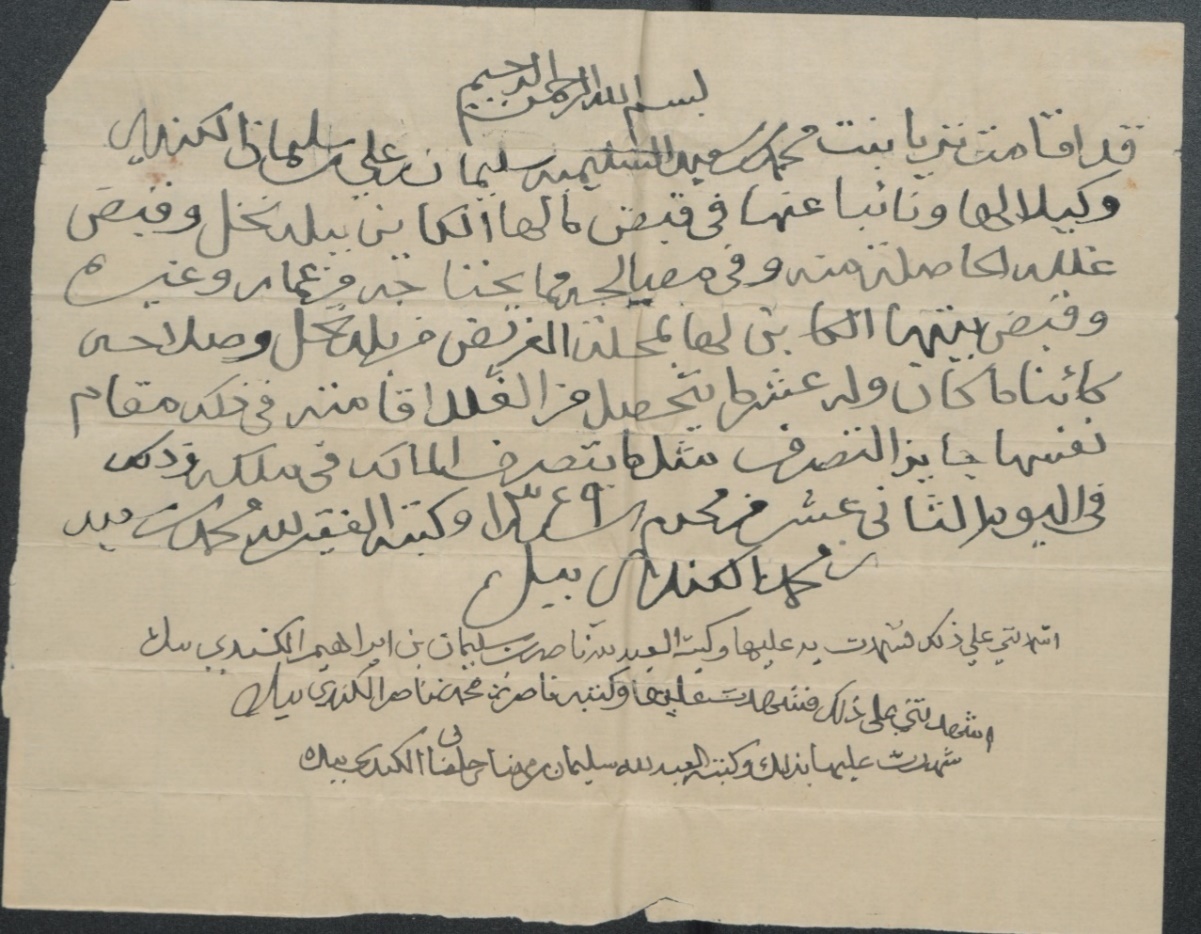 بسم الله الرحمن الرحيم
قد اقامت ثريا بنت محمد بن سعيد السليميه سليمان بن علي بن سليمان الكندي
وكيلا لها ونائبا عنها في قبض مالها الكاين ببلد نخل وقبض
غلله الحاصلة منه وفي مصالحه مما يحتاجه من عمار وغيره
وقبض بيتها الكاين لها بمحلة من بلد نخل وصلاحه
كائنا ما كان وله عشر ما يتحصل من الغلل اقامته في ذلك مقام
نفسها جايز التصرف مثل ما يتصرف المالك في ملكه وذلك
في اليوم الثاني عشر من محرم سنة ١٣٤٩ وكتبه الفقير لله محمد بن سعيد
بن محمد الكندي بيده
اشهدتني على ذلك فشهدت به عليها وكتبه العبد لله ناصر بن سليمان بن ابراهيم الكندي بيده
اشهدتني على ذلك فشهدت عليها وكتبه ناصر بن محمد بن ناصر الكندي بيده
شهدت عليها بذلك وكتبه العبد لله سليمان بن الكندي بيده